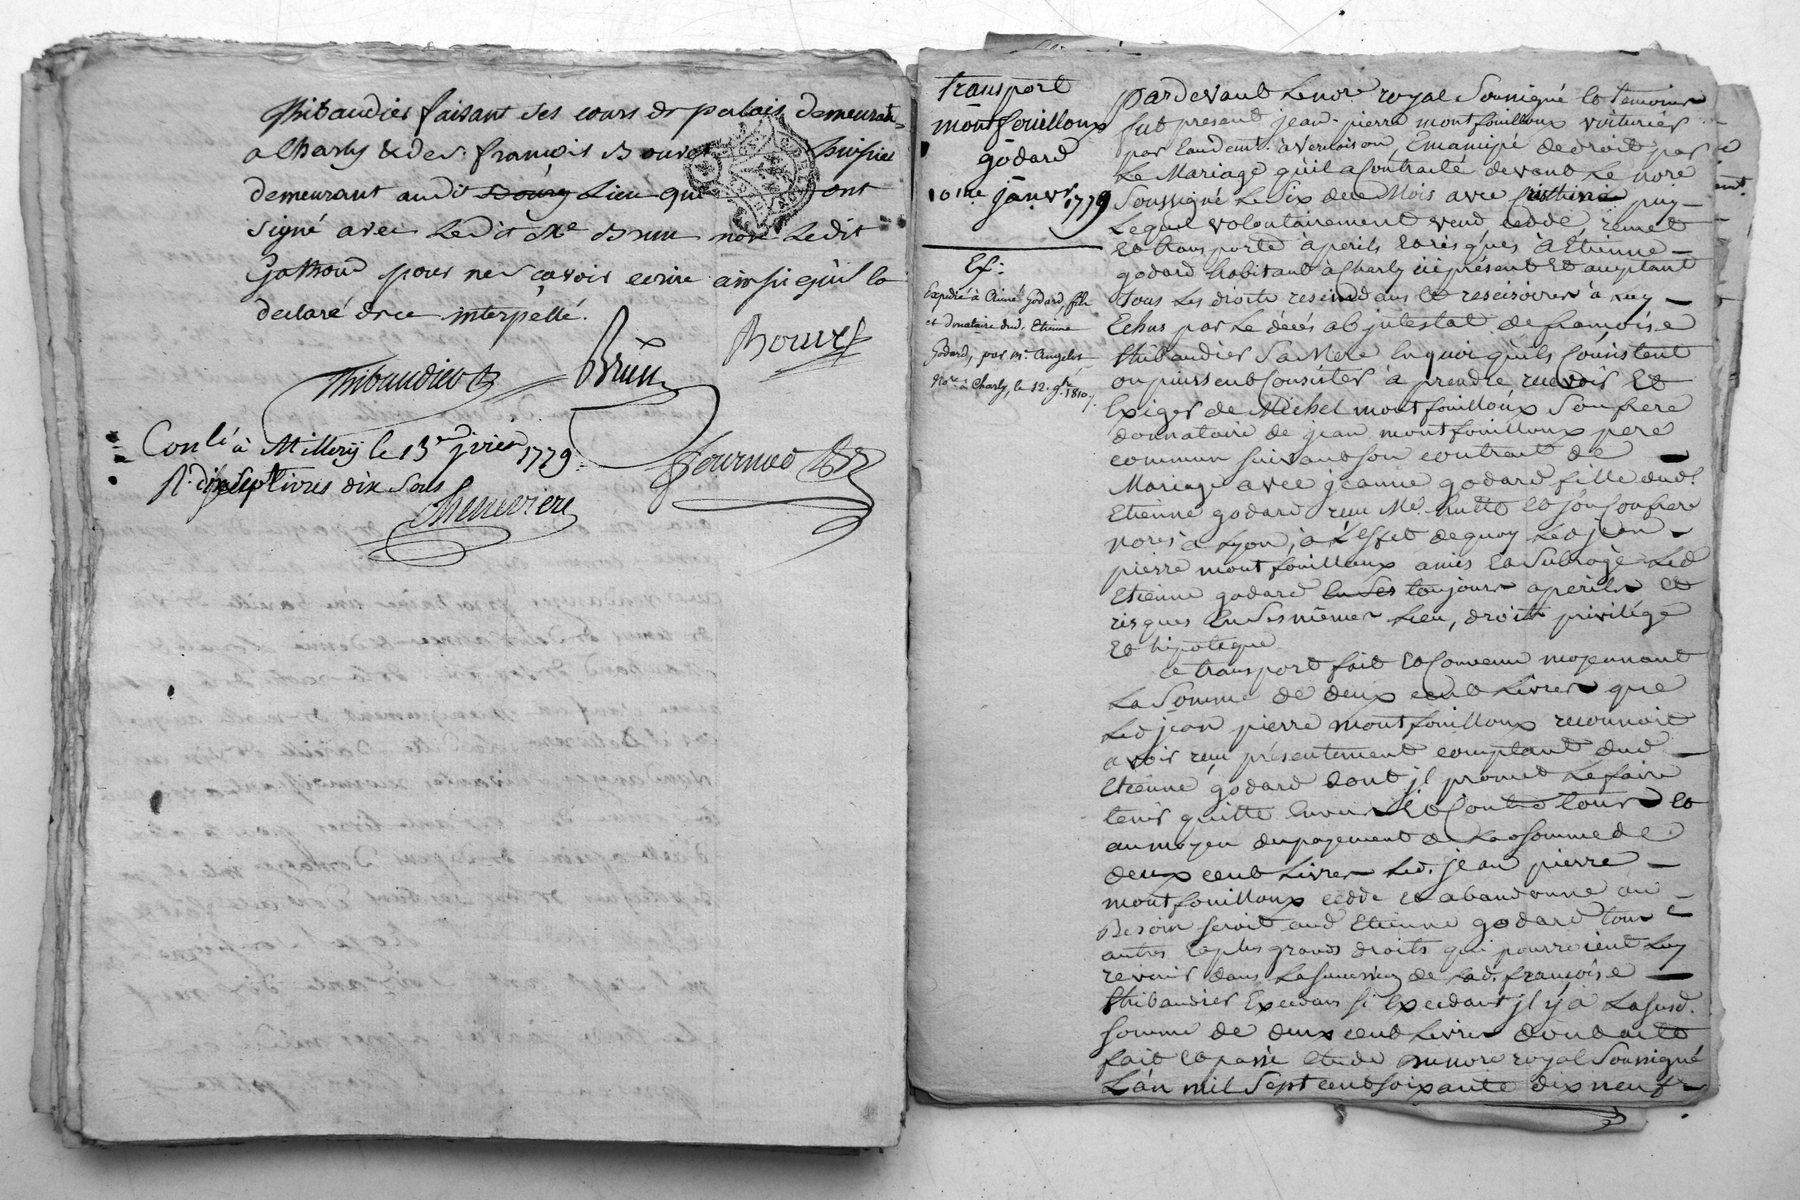 Thibaudier faisant ses cours de palais demeurant
a Charly & de sr françois Bouvet
demeurant audit Lieu qui ont
signé avec Ledit Me Brun nore Ledit
Gothoud pour ne scavoir ecrire ainsi qu'il la
declaré de ce interpellé.
Thibaudier Brun Bouvet
Conlé à Millery le 13e jvier 1779
R. dix sept livres dix sous
Chenevière
Fourneo
transport
montfouilloux
godard
10me janvr 1779
Ef:
Expédié à Aimé Godard, fils
et donataire dud. Etienne
Godard, par Me
Nore à Charly, le 12. 9bre 1810.
Pardevant Le nore royal Soussigné & temoins
fut present jean-pierre montfouilloux voiturier
par Eau demt. à Vernaison, Emancipé de droit par
Le Mariage qu'il a Contracté devant Le nore
Soussigné Le Six de ce Mois avec puy
Lequel volontairement vend cedde, remet
et transporte à perils et risques à Etienne
godard habitant à Charly ici présent et acceptant
tous Les droits rescindans et rescisoires à luy
Echus par Le décés ab intestat de françoise
thibaudier Sa Mere En quoi qu'ils Consistent
ou puissent Consister à prendre recevoir et
Exiger de Michel montfouilloux Son frere
donnataire de jean montfouilloux pere
commun suivant son contrat de
Mariage avec jeanne godard fille dud.
Etienne godard reçu Me. hutte et son Confrere
nores à Lyon, à L'effet de quoy Led jean
pierre montfouilloux a mis et Subrogé Led
Etienne godard en ses toujours a perils et
risques En Ses mêmes Lieu, droit privilége
et hipoteque
Ce transport fait et Convenu moyennant
La Somme de deux cent Livres que
Led jean pierre montfouilloux reconnoit
avoir reçu présentement comptant dud
Etienne godard dont jl promet Le faire
tenir quitte Envers et Contre tous et
au moyen du payement de La d somme de
deux cent Livres Led. jean pierre
montfouilloux cedde et abandonne au
Besoin seroit aud Etienne godard tous
autres et plus grands droits qui pourroient Luy
revenir dans La Succession de Lad. françoise
thibaudier Excedans si Excedant jl y a La susd.
somme de deux cent Livres dont acte
fait et passé Etude du nore royal Soussigné
L'an mil Sept cent soixante dix neuf